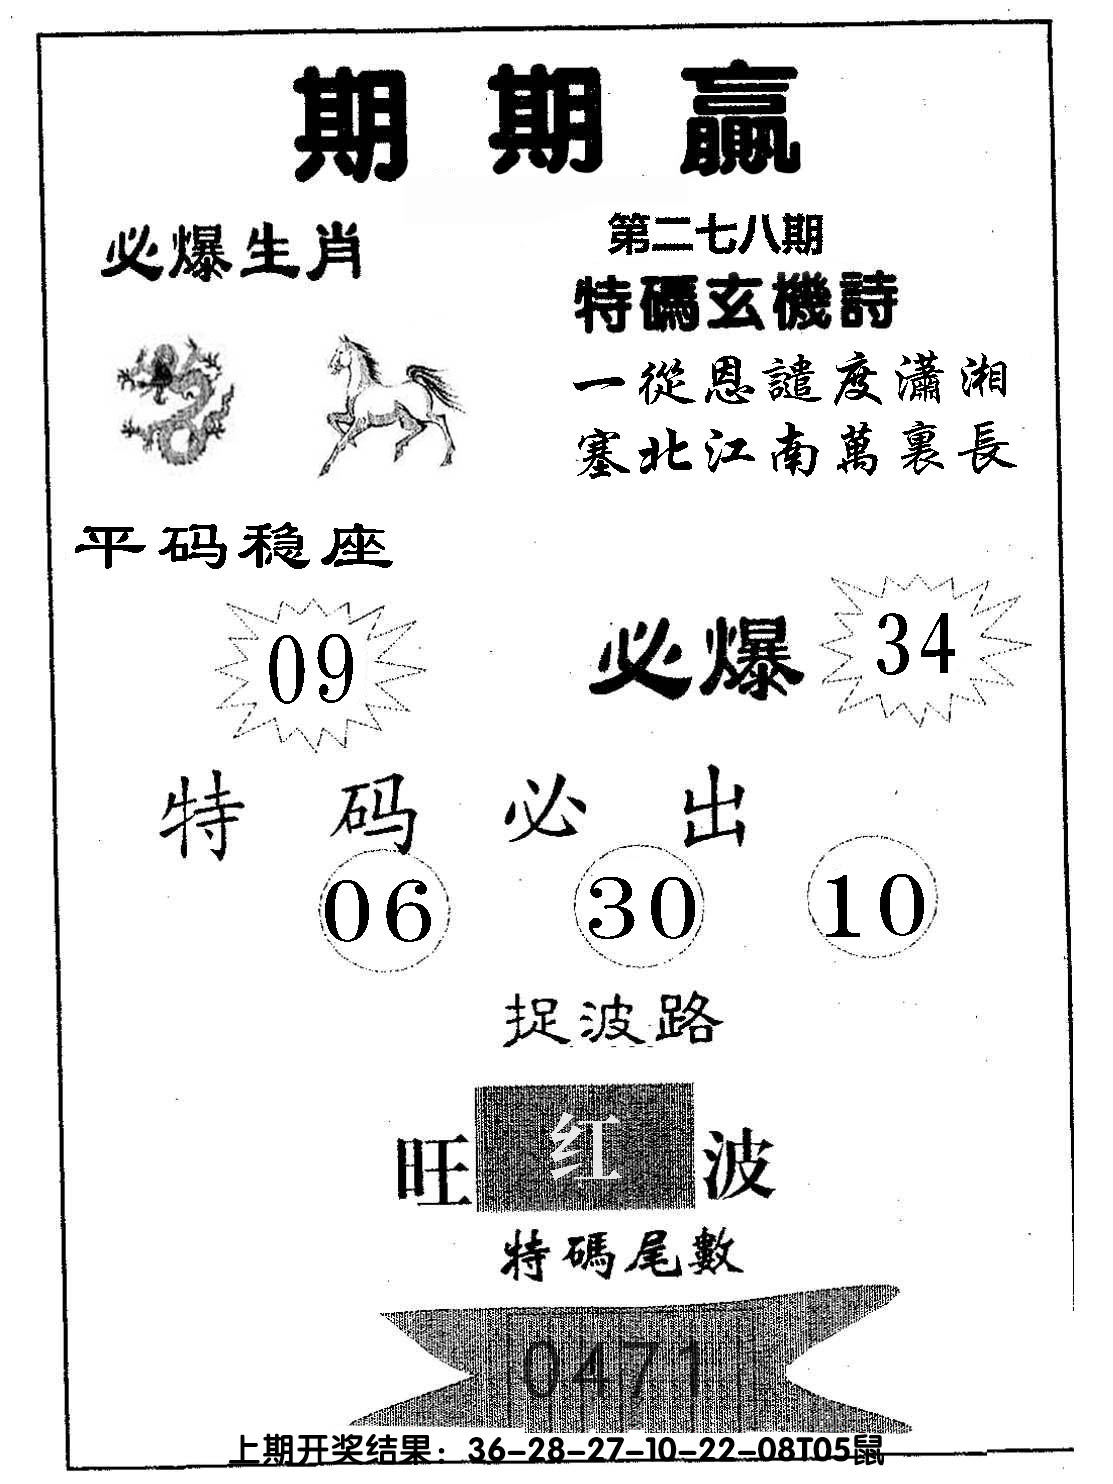 期期贏
必爆生肖
第二七八期
特碼玄機詩
一從恩譴度瀟湘
塞北江南萬裏長
平码稳座
09
必爆
34
特码必出
06 30 10
捉波路
旺红波
特碼尾數
0471
上期开奖结果：36-28-27-10-22-08T05鼠